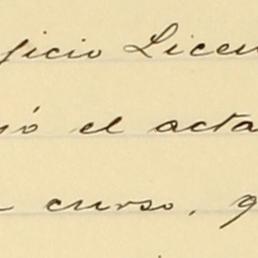 ficio Licen
ó el acta
curso, q